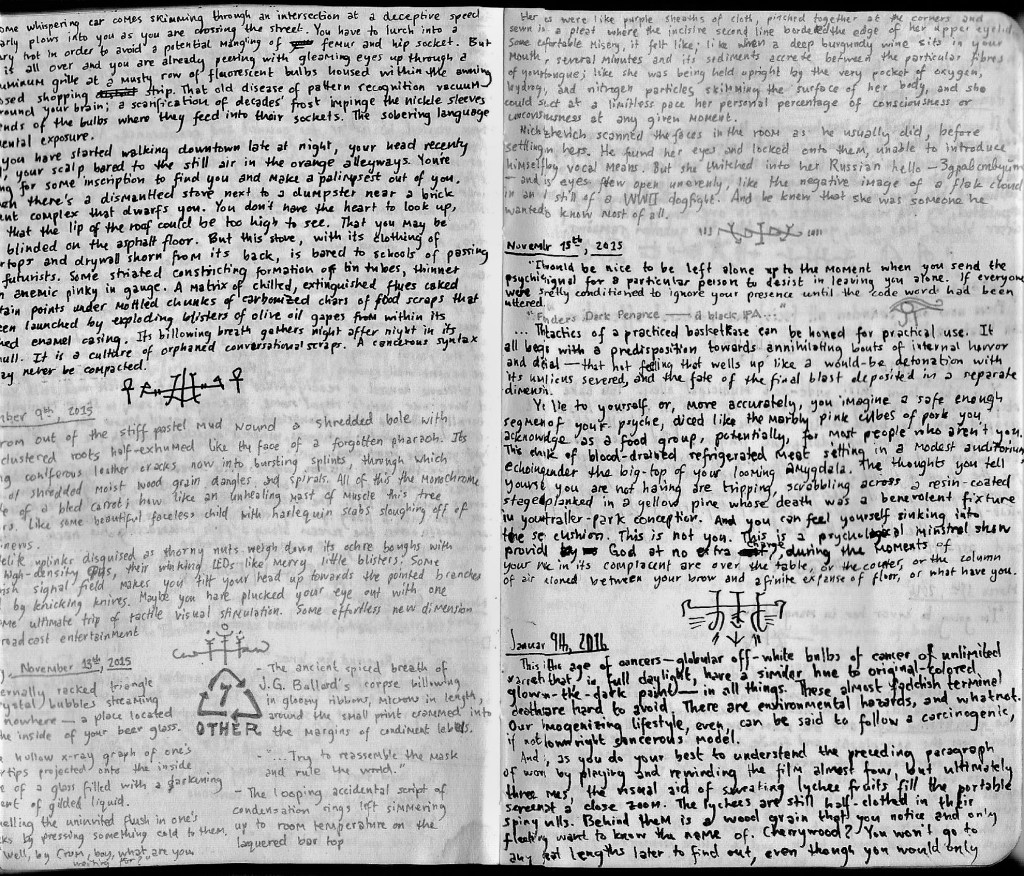 ome whispering car comes skimming through an intersection at a deceptive speed
arly plows into you as you are crossing the street. You have to lurch into a
ry trot in order to avoid a potential mangling of femur and hip socket. But
is all over and you are already peering with gleaming eyes up through a
uminum grille at a musty row of fluorescent bulbs housed within the awning
osed shopping strip. That old disease of pattern recognition vacuum
round your brain; a scarification of decades' frost impinge the nickle sleeves
ends of the bulbs where they feed into their sockets. The sobering language
ental exposure.
you have started walking downtown late at night, your head recently
, your scalp bared to the still air in the orange alleyways. You're
ng for some inscription to find you and make a palimpsest out of you.
en there's a dismantled stove next to a dumpster near a brick
ent complex that dwarfs you. You don't have the heart to look up,
that the lip of the roof could be too high to see. That you may be
blinded on the asphalt floor. But this stove, with its clothing of
rtops and drywall shorn from its back, is bared to schools of passing
futurists. Some striated constricting formation of tin tubes, thinner
n anemic pinky in gauge. A matrix of chilled, extinguished flues caked
tain points under mottled chunks of carbonized chars of food scraps that
een launched by exploding blisters of olive oil gapes from within its
hed enamel casing. Its billowing breath gathers night after night in its
null. It is a culture of orphaned conversational scraps. A cancerous syntax
ay never be compacted.
mber 9th, 2015
rom out of the stiff pastel mud wound a shredded bole with
clustered roots half-exhumed like the face of a forgotten pharaoh. Its
ng coniferous leather cracks now into bursting splints, through which
of shredded moist wood grain dangles and spirals. All of this the monochrome
le of a bled carrot; how like an unhealing mast of muscle this tree
rs. Like some beautiful faceless child with harlequin scabs sloughing off of
neros.
telik uplinks disguised as thorny nuts weigh down its ochre boughs with
high-density their winking LEDs like merry little blisters. Some
ish signal field makes you tilt your head up towards the pointed branches
by knicking knives. Maybe you have plucked your eye out with one
me ultimate trip of tactile visual stimulation. Some effortless new dimension
roadcast entertainment
November 13th, 2015
ernally racked triangle
rystal bubbles streaming
nowhere — a place located
he inside of your beer glass.
hollow x-ray graph of one's
rtips projected onto the inside
e of a glass filled with a darkening
ent of gilded liquid.
elling the uninvited flush in one's
ks by pressing something cold to them.
well, by Crom, boy, what are you
waiting for?"
7
OTHER
- The ancient spiced breath of
J.G. Ballard's corpse billowing
in gloomy ribbons, microns in length,
around the small print crammed into
the margins of condiment labels.
- "...Try to reassemble the mask
and rule the world."
- The looping accidental script of
condensation rings left simmering
up to room temperature on the
laquered bar top
Her s were like purple sheaths of cloth, pinched together at the corners and
sewn in a pleat where the incisive second line bordered the edge of her upper eyelid
Some comfortable misery, it felt like; like when a deep burgundy wine sits in your
mouth, several minutes and its sediments accrete between the particular fibres
of your tongue; like she was being held upright by the very pocket of oxygen,
hydrog, and nitrogen particles skimming the surface of her body, and she
could suct at a limitless pace her personal percentage of consciousness or
unconsciousness at any given moment.
scanned the faces in the room as he usually did, before
settling on hers. He found her eyes and locked onto them, unable to introduce
himself by vocal means. But she into her Russian hello —
— and is eyes flew open unevenly, like the negative image of a flak cloud
in an still of a WWII dogfight. And he knew that she was someone he
wanted to know most of all.
November 15th, 2015
"It would be nice to be left alone up to the moment when you send the
psychic signal for a particular person to desist in leaving you alone. If everyone
were conditioned to ignore your presence until the code word had been
uttered.
"Enders Dark Penance — a black IPA..."
... The tactics of a practiced basketkase can be honed for practical use. It
all begs with a predisposition towards annihilating bouts of internal horror
and dial — that hot feeling that wells up like a would-be detonation with
its severed, and the fate of the final blast deposited in a separate
dimensin.
Yu lie to yourself or, more accurately, you imagine a safe enough
segment of your psyche, diced like the marbly pink cubes of pork you
acknowledge as a food group, potentially, for most people who aren't you.
This chunk of blood-drained refrigerated meat setting in a modest auditorium
echoing under the big-top of your looming amygdala. The thoughts you tell
yourself you are not having are tripping, scrabbling across a resin-coated
stage planked in a yellow pine whose death was a benevolent fixture
in your trailer-park conception. And you can feel yourself sinking into
the se cushion. This is not you. This is a psychological minstrel show
provid by God at no extra charge, during the moments of
your in its complacent arc over the table, or the counter, or the column
of air cloned between your brow and a finite expanse of floor, or what have you.
Januar 9th, 2016
This is the age of cancers — globular off-white bulbs of cancer of unlimited
that, in full daylight, have a similar hue to original-colored
glow-in-the-dark paint — in all things. These almost faddish terminal
deaths are hard to avoid. There are environmental hazards, and whatnot.
Our homogenizing lifestyle, even, can be said to follow a carcinogenic,
if not downright cancerous model.
And, as you do your best to understand the preceding paragraph
of work by playing and rewinding the film almost four, but ultimately
three times, the visual aid of lychee fruits fill the portable
screen at a close zoom. The lychees are still half-clothed in their
spiny hulls. Behind them is a wood grain that you notice and only
fleeting want to know the name of. Cherrywood? You won't go to
any great lengths later to find out, even though you would only